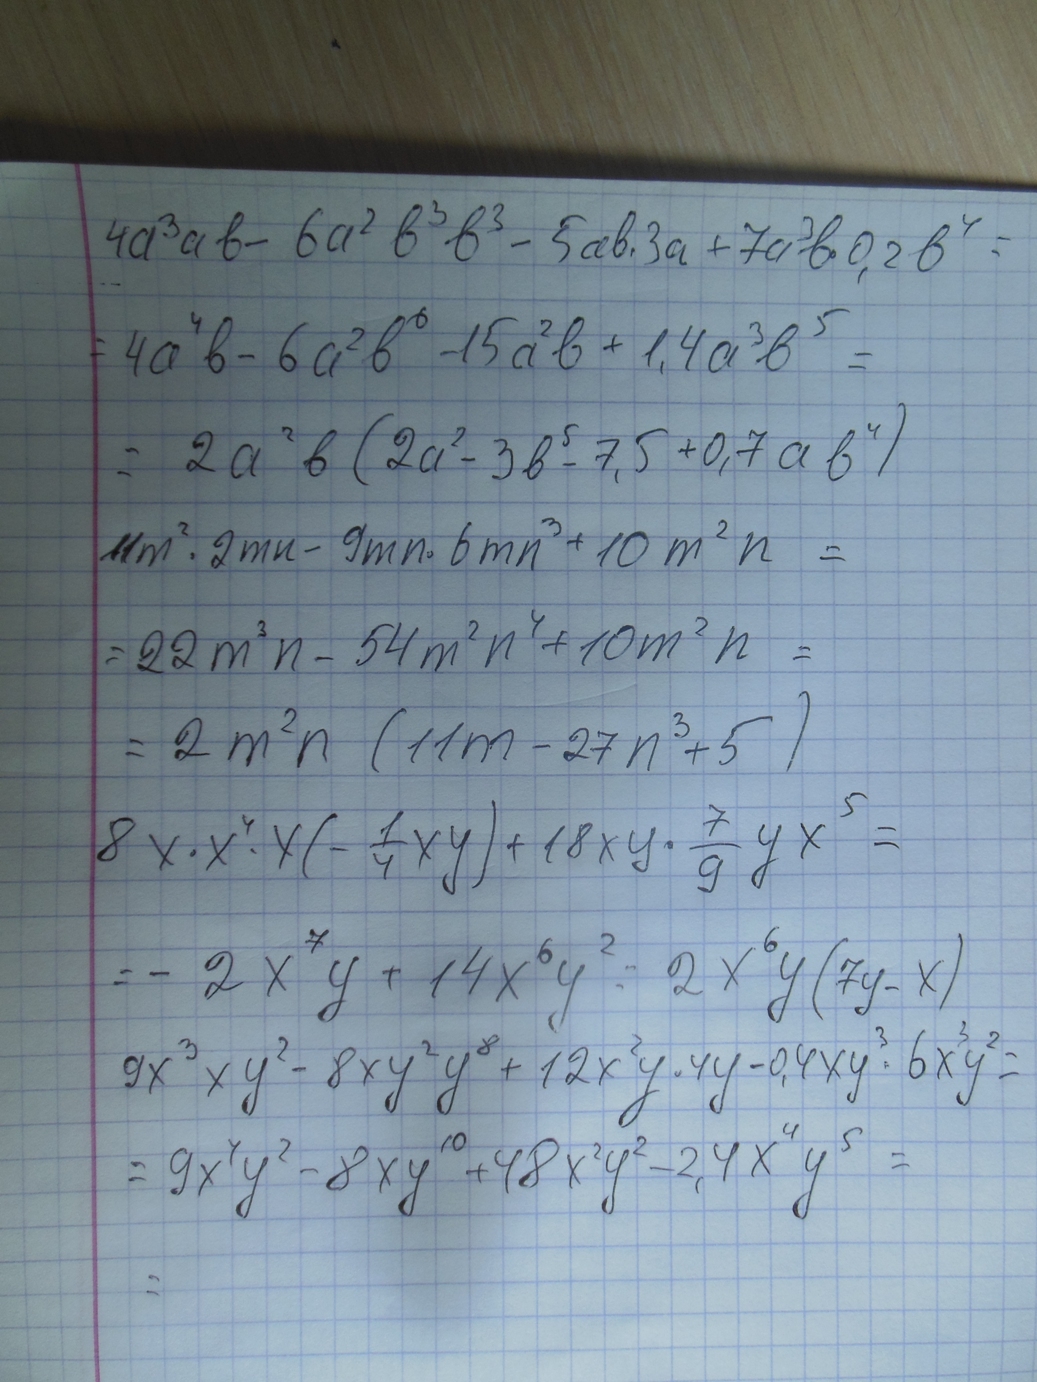 4a³ab - 6a²b³b³ - 5ab·3a + 7a³b·0,2b⁴ =
= 4a⁴b - 6a²b⁶ - 15a²b + 1,4a³b⁵ =
= 2a²b (2a² - 3b⁵ - 7,5 + 0,7ab⁴)
11m²·2mn - 9mn·6mn³ + 10m²n =
= 22m³n - 54m²n⁴ + 10m²n =
= 2m²n (11m - 27n³ + 5)
8x·x⁴·x(-1/4xy) + 18xy·7/9yx⁵ =
= - 2x⁷y + 14x⁶y² = 2x⁶y(7y - x)
9x³xy² - 8xy²y⁸ + 12x²y·4y - 0,4xy³·6x³y² =
= 9x⁴y² - 8xy¹⁰ + 48x²y² - 2,4x⁴y⁵ =
=